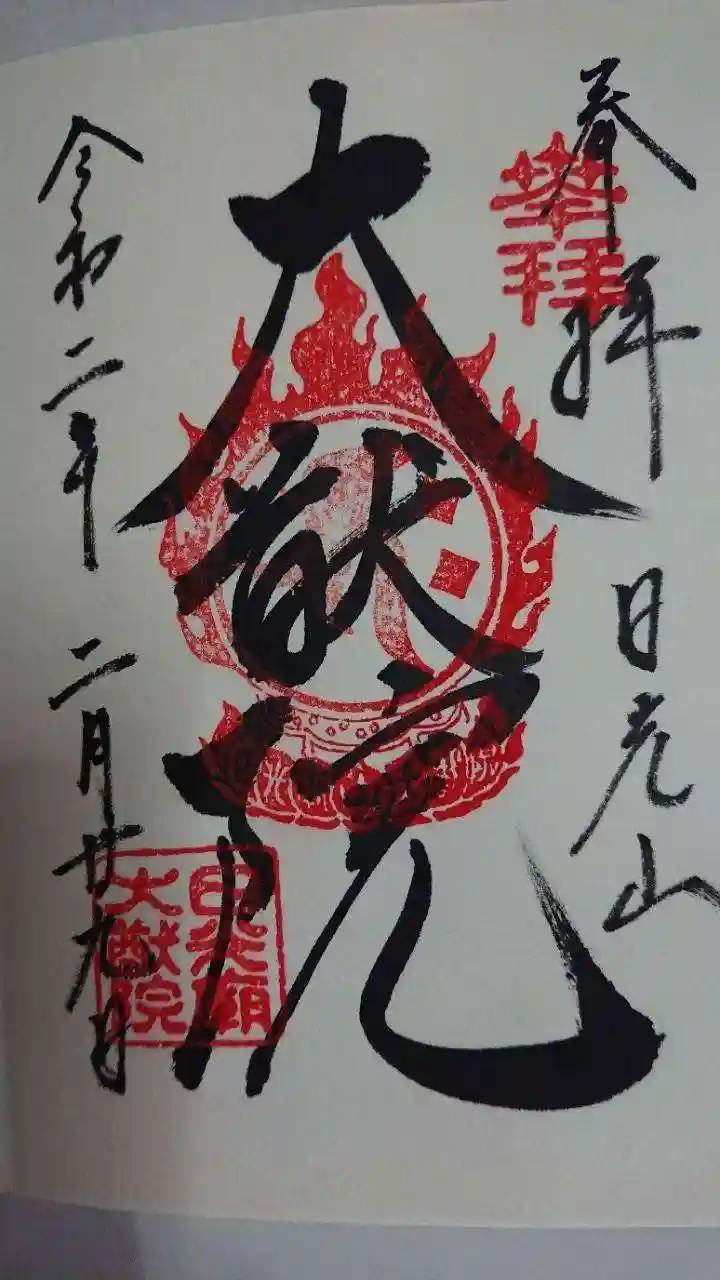 奉拝
奉拝
日光山
大猷院
令和二年
二月廿九日
日光廟
大猷院